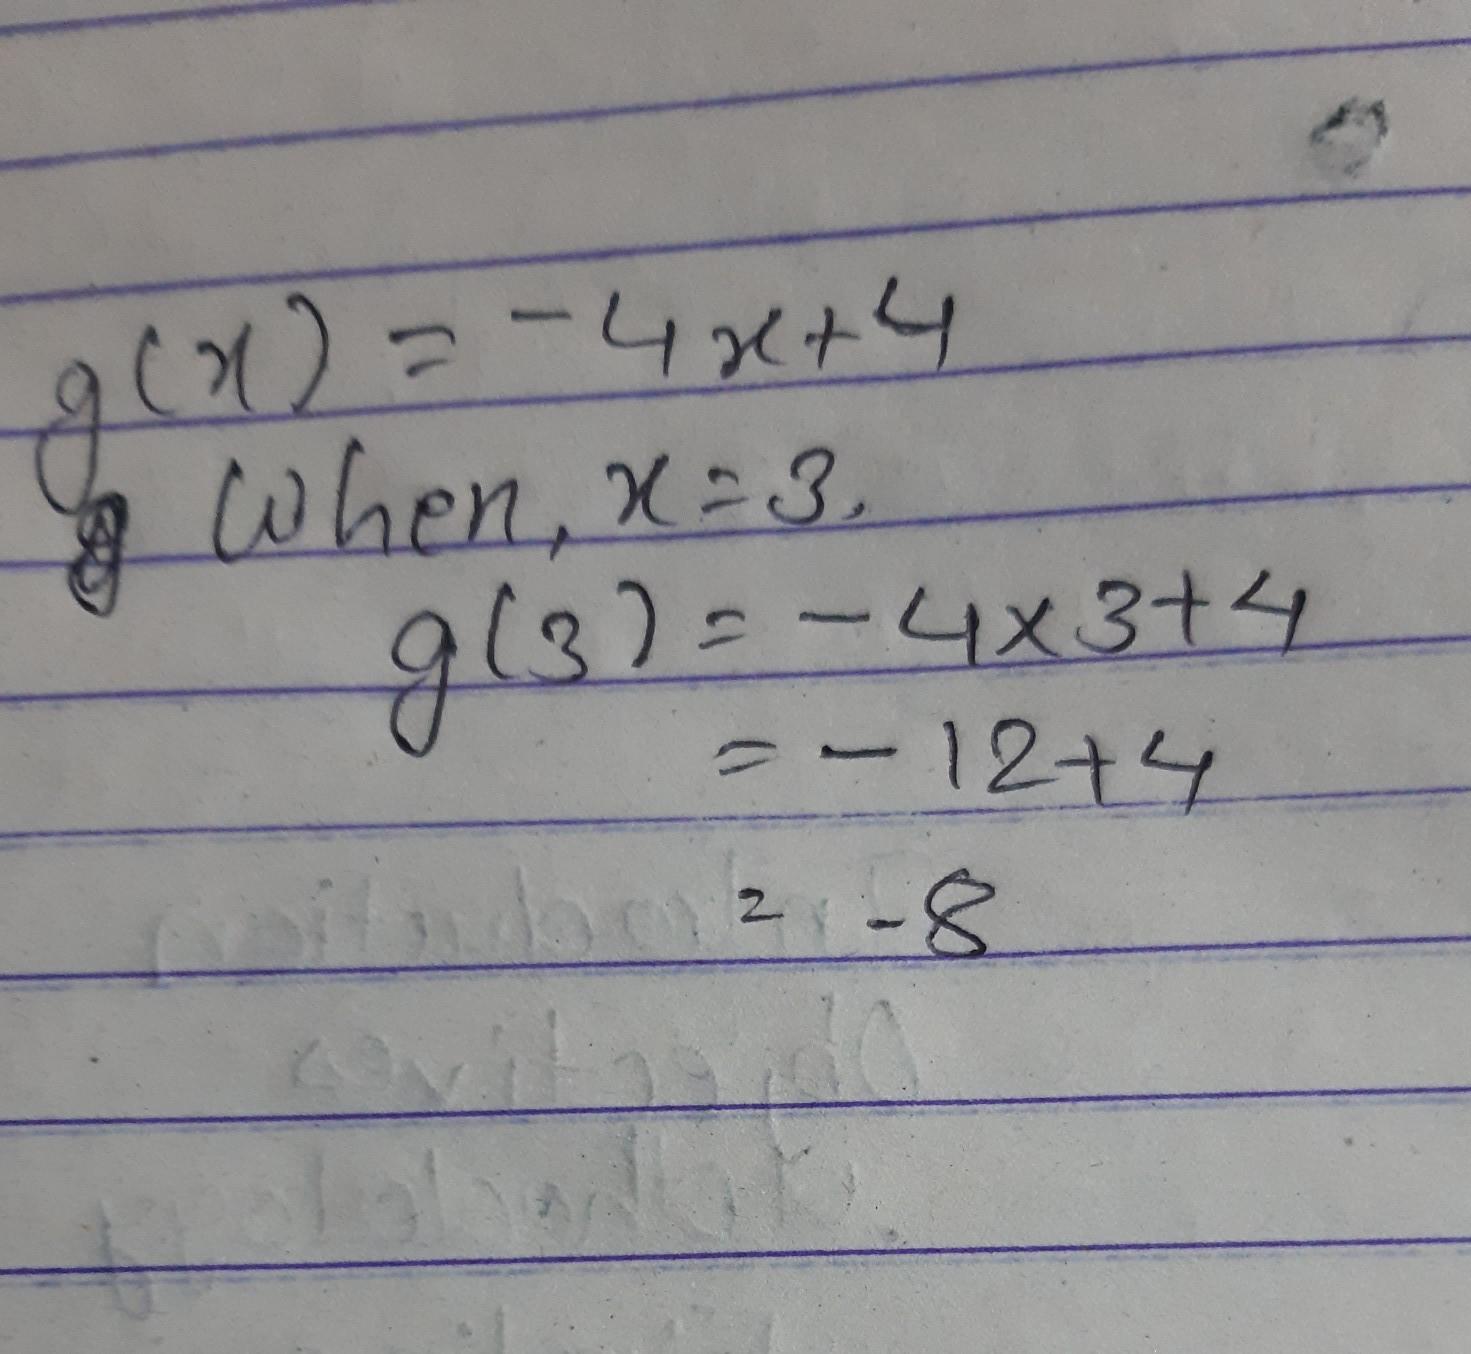 g(x) = -4x+4
When, x=3.
g(3) = -4×3+4
= -12+4
= -8